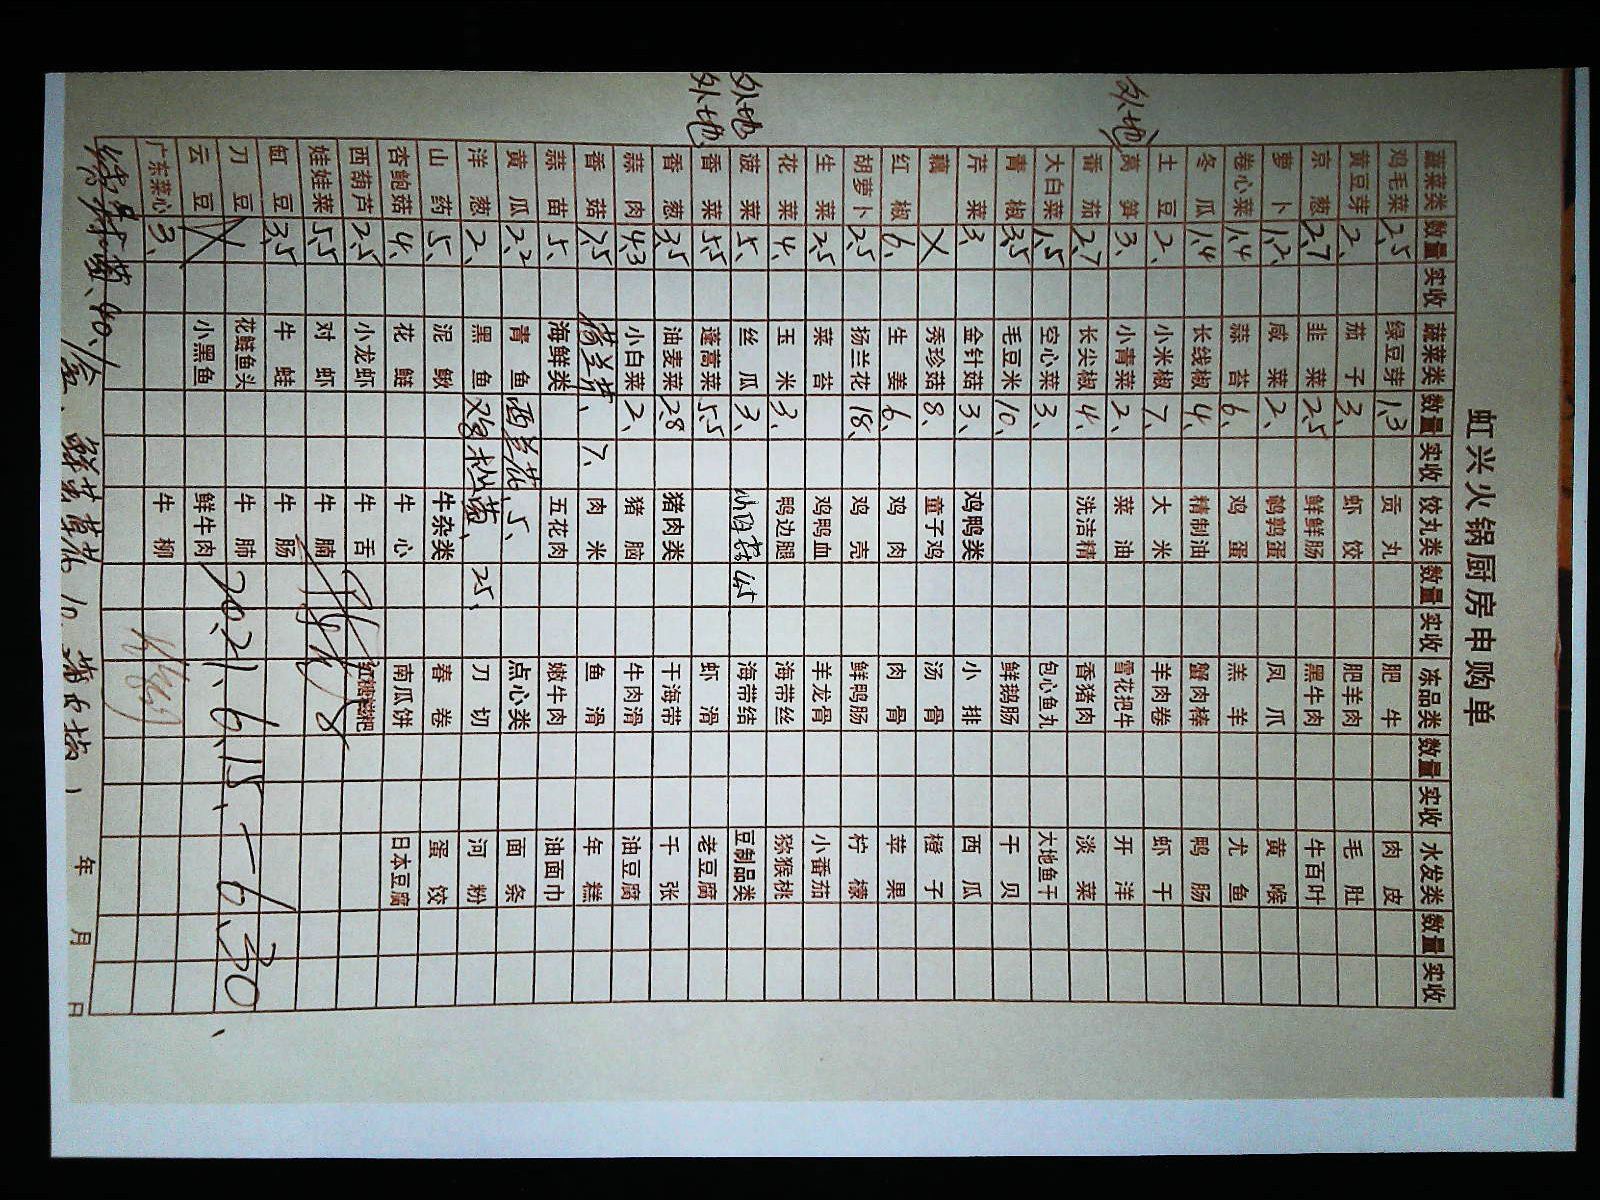 虹兴火锅厨房申购单
蔬菜类 数量 实收 蔬菜类 数量 实收 饺丸类 数量 实收 冻品类 数量 实收 水发类 数量 实收
鸡毛菜 2.5 绿豆芽 1.3 贡丸 肥牛 肉皮
黄豆芽 2、 茄子 3、 虾饺 肥羊肉 毛肚
京葱 2.7 韭菜 2.5 鲜鲜肠 黑牛肉 牛百叶
萝卜 1.2、 咸菜 2、 鹌鹑蛋 凤爪 黄喉
卷心菜 1.4 蒜苔 6、 鸡蛋 羔羊 尤鱼
冬瓜 1.4 长线椒 4、 精制油 蟹肉棒 鸭肠
土豆 2、 小米椒 7、 大米 羊肉卷 虾干
外地 莴笋 3、 小青菜 2、 菜油 雪花把牛 开洋
番茄 2.7 长尖椒 4、 洗洁精 香猪肉 淡菜
大白菜 1.5 空心菜 3、 包心鱼丸 大地鱼干
青椒 3.5 毛豆米 10、 鲜鹅肠 干贝
芹菜 3、 金针菇 3、 鸡鸭类 小排 西瓜
藕 X 秀珍菇 8、 童子鸡 汤骨 橙子
红椒 6、 生姜 6、 鸡肉 肉骨 苹果
胡萝卜 2.5 扬兰花 18、 鸡壳 鲜鸭肠 柠檬
生菜 2.5 菜苔 鸡鸭血 羊龙骨 小番茄
花菜 4、 玉米 3、 鸭边腿 海带丝 猕猴桃
外地 菠菜 5、 丝瓜 3、 4.5 海带结 豆制品类
外地 香菜 5.5 蓬蒿菜 5.5 虾滑 老豆腐
香葱 3.5 油麦菜 2.8 猪肉类 干海带 千张
蒜肉 4.3 小白菜 2、 猪脑 牛肉滑 油豆腐
香菇 7.5 7、 肉米 鱼滑 年糕
蒜苗 5、 海鲜类 五花肉 嫩牛肉 油面巾
黄瓜 2.2 青鱼 西兰花、5、 点心类 面条
洋葱 2、 黑鱼 25、 刀切 河粉
山药 5、 泥鳅 牛杂类 春卷 蛋饺
杏鲍菇 4、 花鲢 牛心 南瓜饼 日本豆腐
西葫芦 2.5 小龙虾 牛舌 红糖糍粑
娃娃菜 5.5 对虾 牛腩
缸豆 3.5 牛蛙 牛肠
刀豆 X 花鲢鱼头 牛肺
云豆 X 小黑鱼 鲜牛肉 2021、6.15、—6.30、
广东菜心 3、 牛柳
40、/盒、 10、
年 月 日